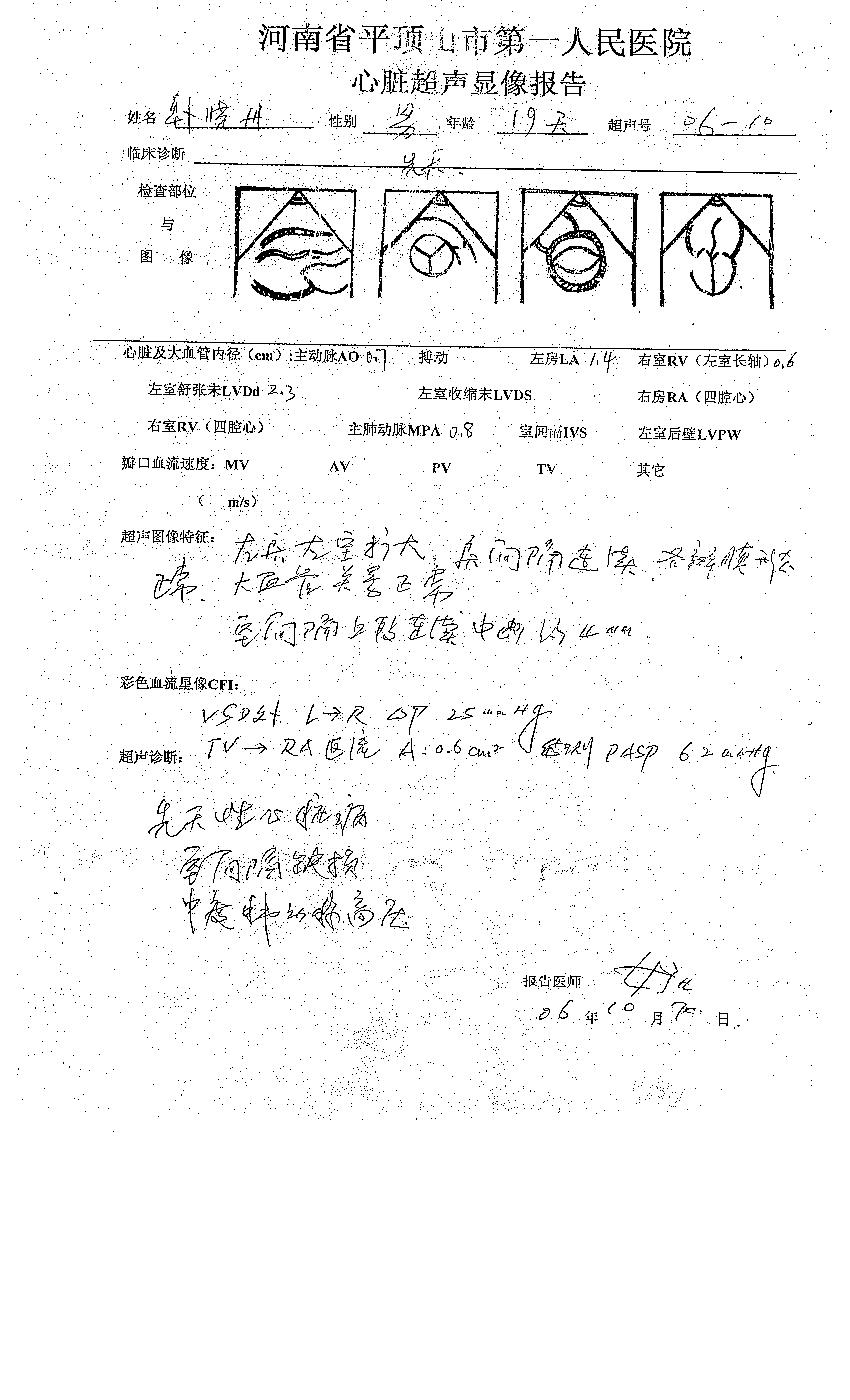 河南省平顶山市第一人民医院
心脏超声显像报告
姓名 晓丹 性别 男 年龄 19天 超声号 06-10
临床诊断 先天
检查部位
与
图 像
心脏及大血管内径（cm）:主动脉AO 0.7 搏动 左房LA 1.4 右室RV（左室长轴）0.6
左室舒张末LVDd 2.3 左室收缩末LVDS 右房RA（四腔心）
右室RV（四腔心） 主肺动脉MPA 0.8 室间隔IVS 左室后壁LVPW
瓣口血流速度：MV AV PV TV 其它
（ m/s）
超声图像特征： 左房左室扩大，房间隔连续，各瓣膜形态
正常，大血管关系正常
室间隔上段连续中断约4mm
彩色血流显像CFI：
VSD处 L→R ΔP 25mmHg
超声诊断： TV→RA返流 A:0.6cm² PASP 62mmHg
先天性心脏病
室间隔缺损
中度肺动脉高压
报告医师
06 年 10 月 日